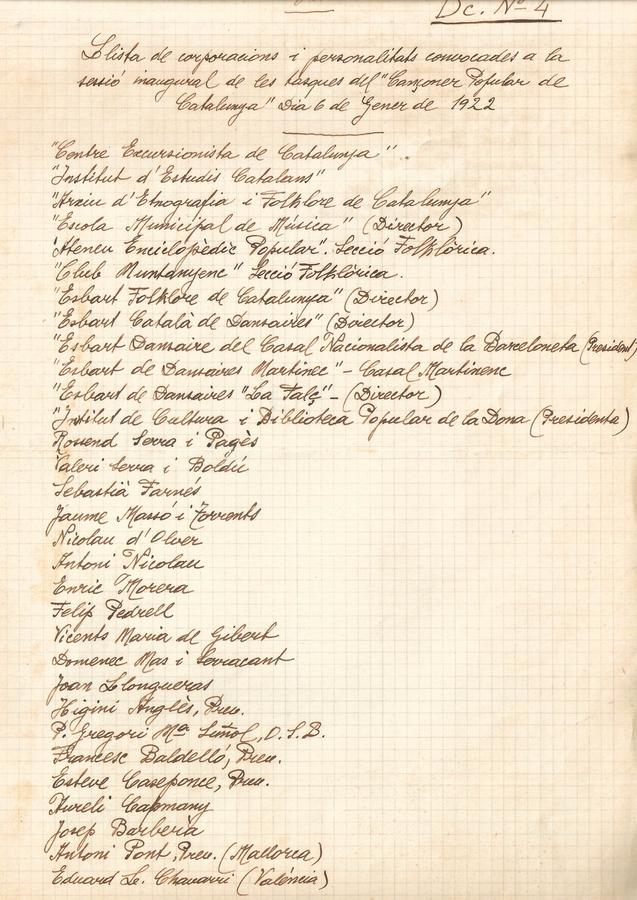 Dc. Nº 4
Llista de corporacions i personalitats convocades a la
sessió inaugural de les tasques del "Cançoner Popular de
Catalunya" Dia 6 de Gener de 1922
"Centre Excursionista de Catalunya"
"Institut d'Estudis Catalans"
"Arxiu d'Etnografia i Folklore de Catalunya"
"Escola Municipal de Música" (Director)
"Ateneu Enciclopèdic Popular". Secció Folklòrica.
"Club Muntanyenc" Secció Folklòrica.
"Esbart Folklore de Catalunya" (Director)
"Esbart Català de Dansaires" (Director)
"Esbart Dansaire del Casal Nacionalista de la Barceloneta (President)
"Esbart de Dansaires Martinec" - Casal Martinenc
"Esbart de Dansaires "La Falç" - (Director)
"Institut de Cultura i Biblioteca Popular de la Dona (Presidenta)
Rossend Serra i Pagès
Valeri Serra i Boldú
Sebastià Farnés
Jaume Massó i Torrents
Nicolau d'Olwer
Antoni Nicolau
Enric Morera
Felip Pedrell
Vicents Maria de Gibert
Domenec Mas i Serracant
Joan Llongueras
Higini Anglès, Prev.
P. Gregori Mª Suñol, O.S.B.
Francesc Baldelló, Prev.
Esteve Caseponce, Prev.
Aureli Capmany
Josep Barberà
Antoni Pont, Prev. (Mallorca)
Eduard L. Chavarri (València)